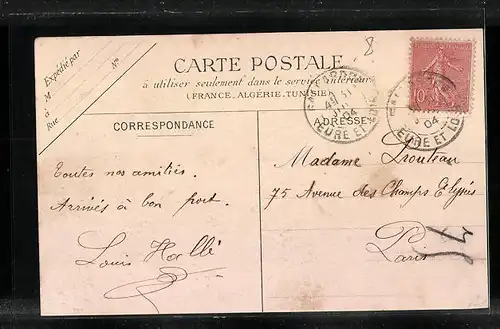 8
Expédié par
M
à
Rue
N°
CARTE POSTALE
à utiliser seulement dans le service intérieur
(FRANCE, ALGÉRIE, TUNISIE)
10
04
EURE ET LOIR
04
EURE ET LOIR
CORRESPONDANCE
ADRESSE
Toutes nos amitiés.
Arrivés à bon port.
Louis Hallé
Madame
75 Avenue des Champs Elysées
Paris